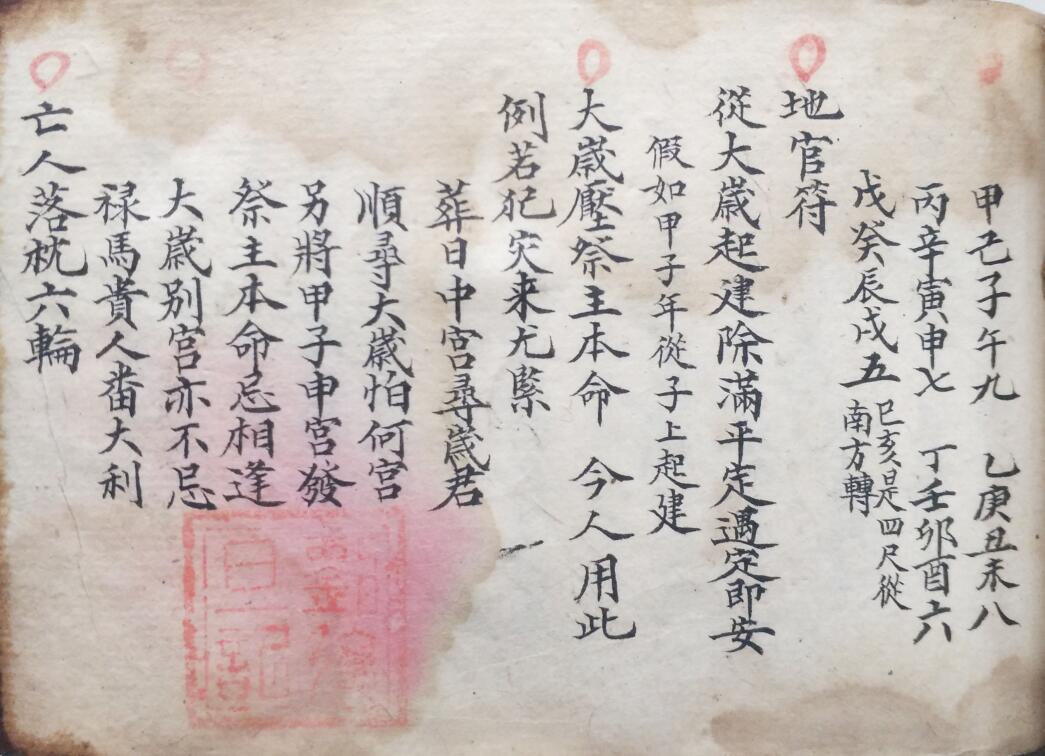 甲己子午九　乙庚丑未八
丙辛寅申七　丁壬卯酉六
戊癸辰戌五　巳亥是四尺從
南方轉
地官符
從大歲起建除滿平定遇定即安
假如甲子年從子上起建
大歲壓祭主本命　今人用此
例若犯灾来尤緊
葬日中宮尋歲君
順尋大歲怕何宮
另將甲子申宮發
祭主本命忌相逢
大歲别宮亦不忌
禄馬貴人番大利
亡人落枕六輪